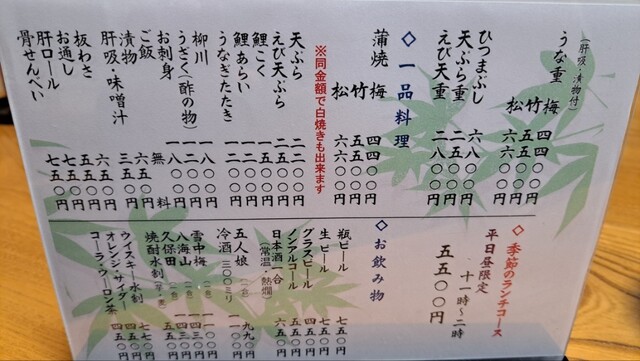 うな重
(肝吸・漬物付)
梅 四四〇〇円
竹 五五〇〇円
松
ひつまぶし 六八〇〇円
天ぷら重 二五〇〇円
えび天重 二八〇〇円
◇一品料理
蒲焼
梅 四四〇〇円
竹 五五〇〇円
松 六六〇〇円
※同金額で白焼きも出来ます
天ぷら 二二〇〇円
えび天ぷら 二五〇〇円
鯉こく 一五〇〇円
鯉あらい 一二〇〇円
うなぎたたき 一二〇〇円
柳川 一八〇〇円
うざく(酢の物) 一二〇〇円
お刺身 一八〇〇円
ご飯 無料
漬物 六五〇円
肝吸・味噌汁 三五〇円
板わさ 六五〇円
お通し 五五〇円
肝ロール 七五〇円
骨せんべい 七五〇円
◇季節のランチコース
平日昼限定 十一時〜二時
五五〇〇円
◇お飲み物
瓶ビール 七五〇円
生ビール 七五〇円
グラスビール 五五〇円
ノンアルコール 五五〇円
日本酒一合 六五〇円
(常温・熱燗)
五人娘 九九〇円
冷酒 三〇〇ミリ 一一〇〇円
雪中梅 一一〇〇円
八海山 一四三〇円
久保田 一四三〇円
焼酎水割 五五〇円
ウイスキー水割 七七〇円
オレンジ・サイダー 四五〇円
コーラ・ウーロン茶 四五〇円